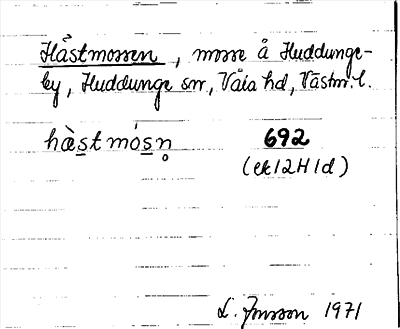 Hästmossen, mosse å Huddunge-
by, Huddunge sn, Våla hd, Västm. l.
hæ̀stmósn̥ 692
(ek 12H1d)
L. Jonsson 1971